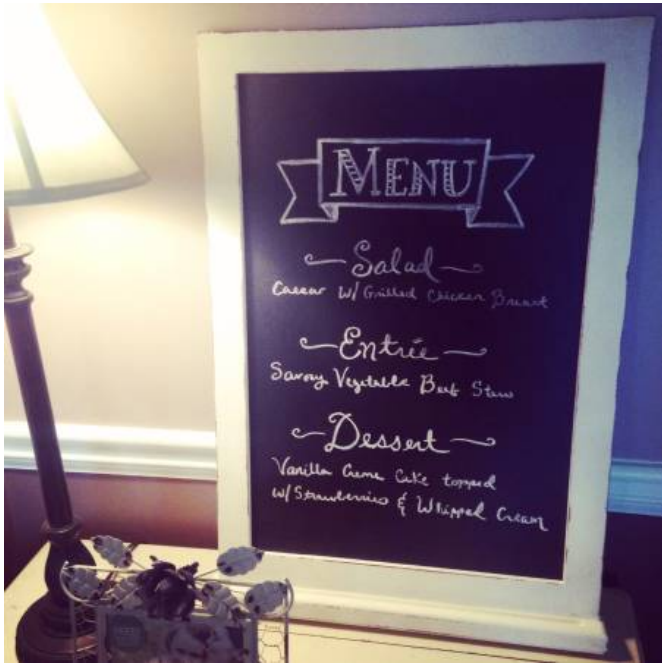 MENU
Salad
Caesar w/ Grilled Chicken Breast
Entrée
Savory Vegetable Beef Stew
Dessert
Vanilla Creme Cake topped
w/ Strawberries & Whipped Cream